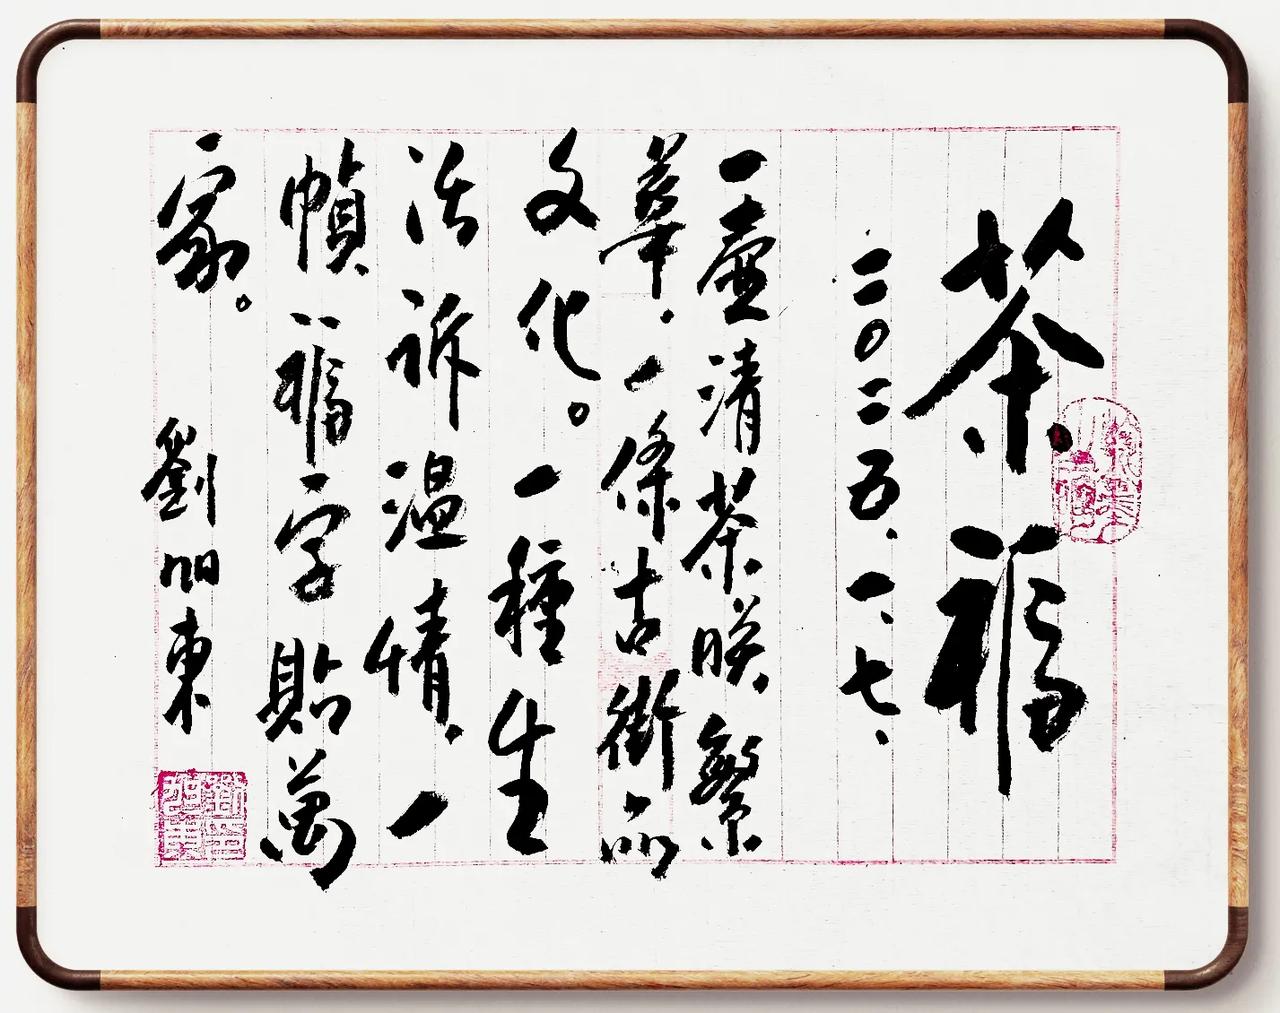 茶福
二〇二五.一.七.
一壶清茶映繁
華.一條古街品
文化。一種生
活訴温情.一
幀福字貼萬
家。 劉旭東